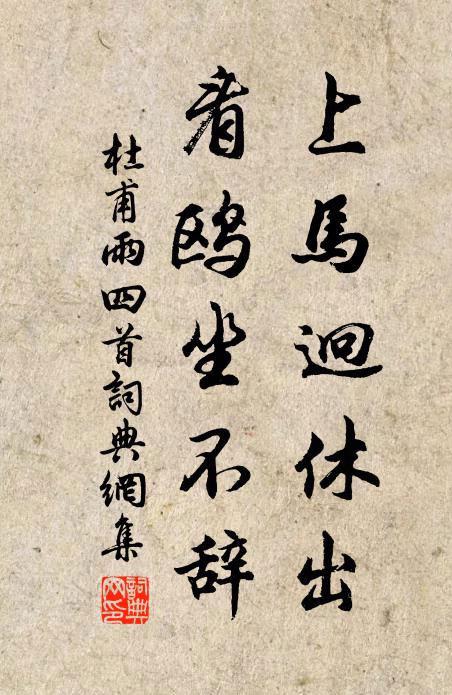 上馬迥休出
看鷗坐不辞
杜甫雨四首詞典網集
詞典網印